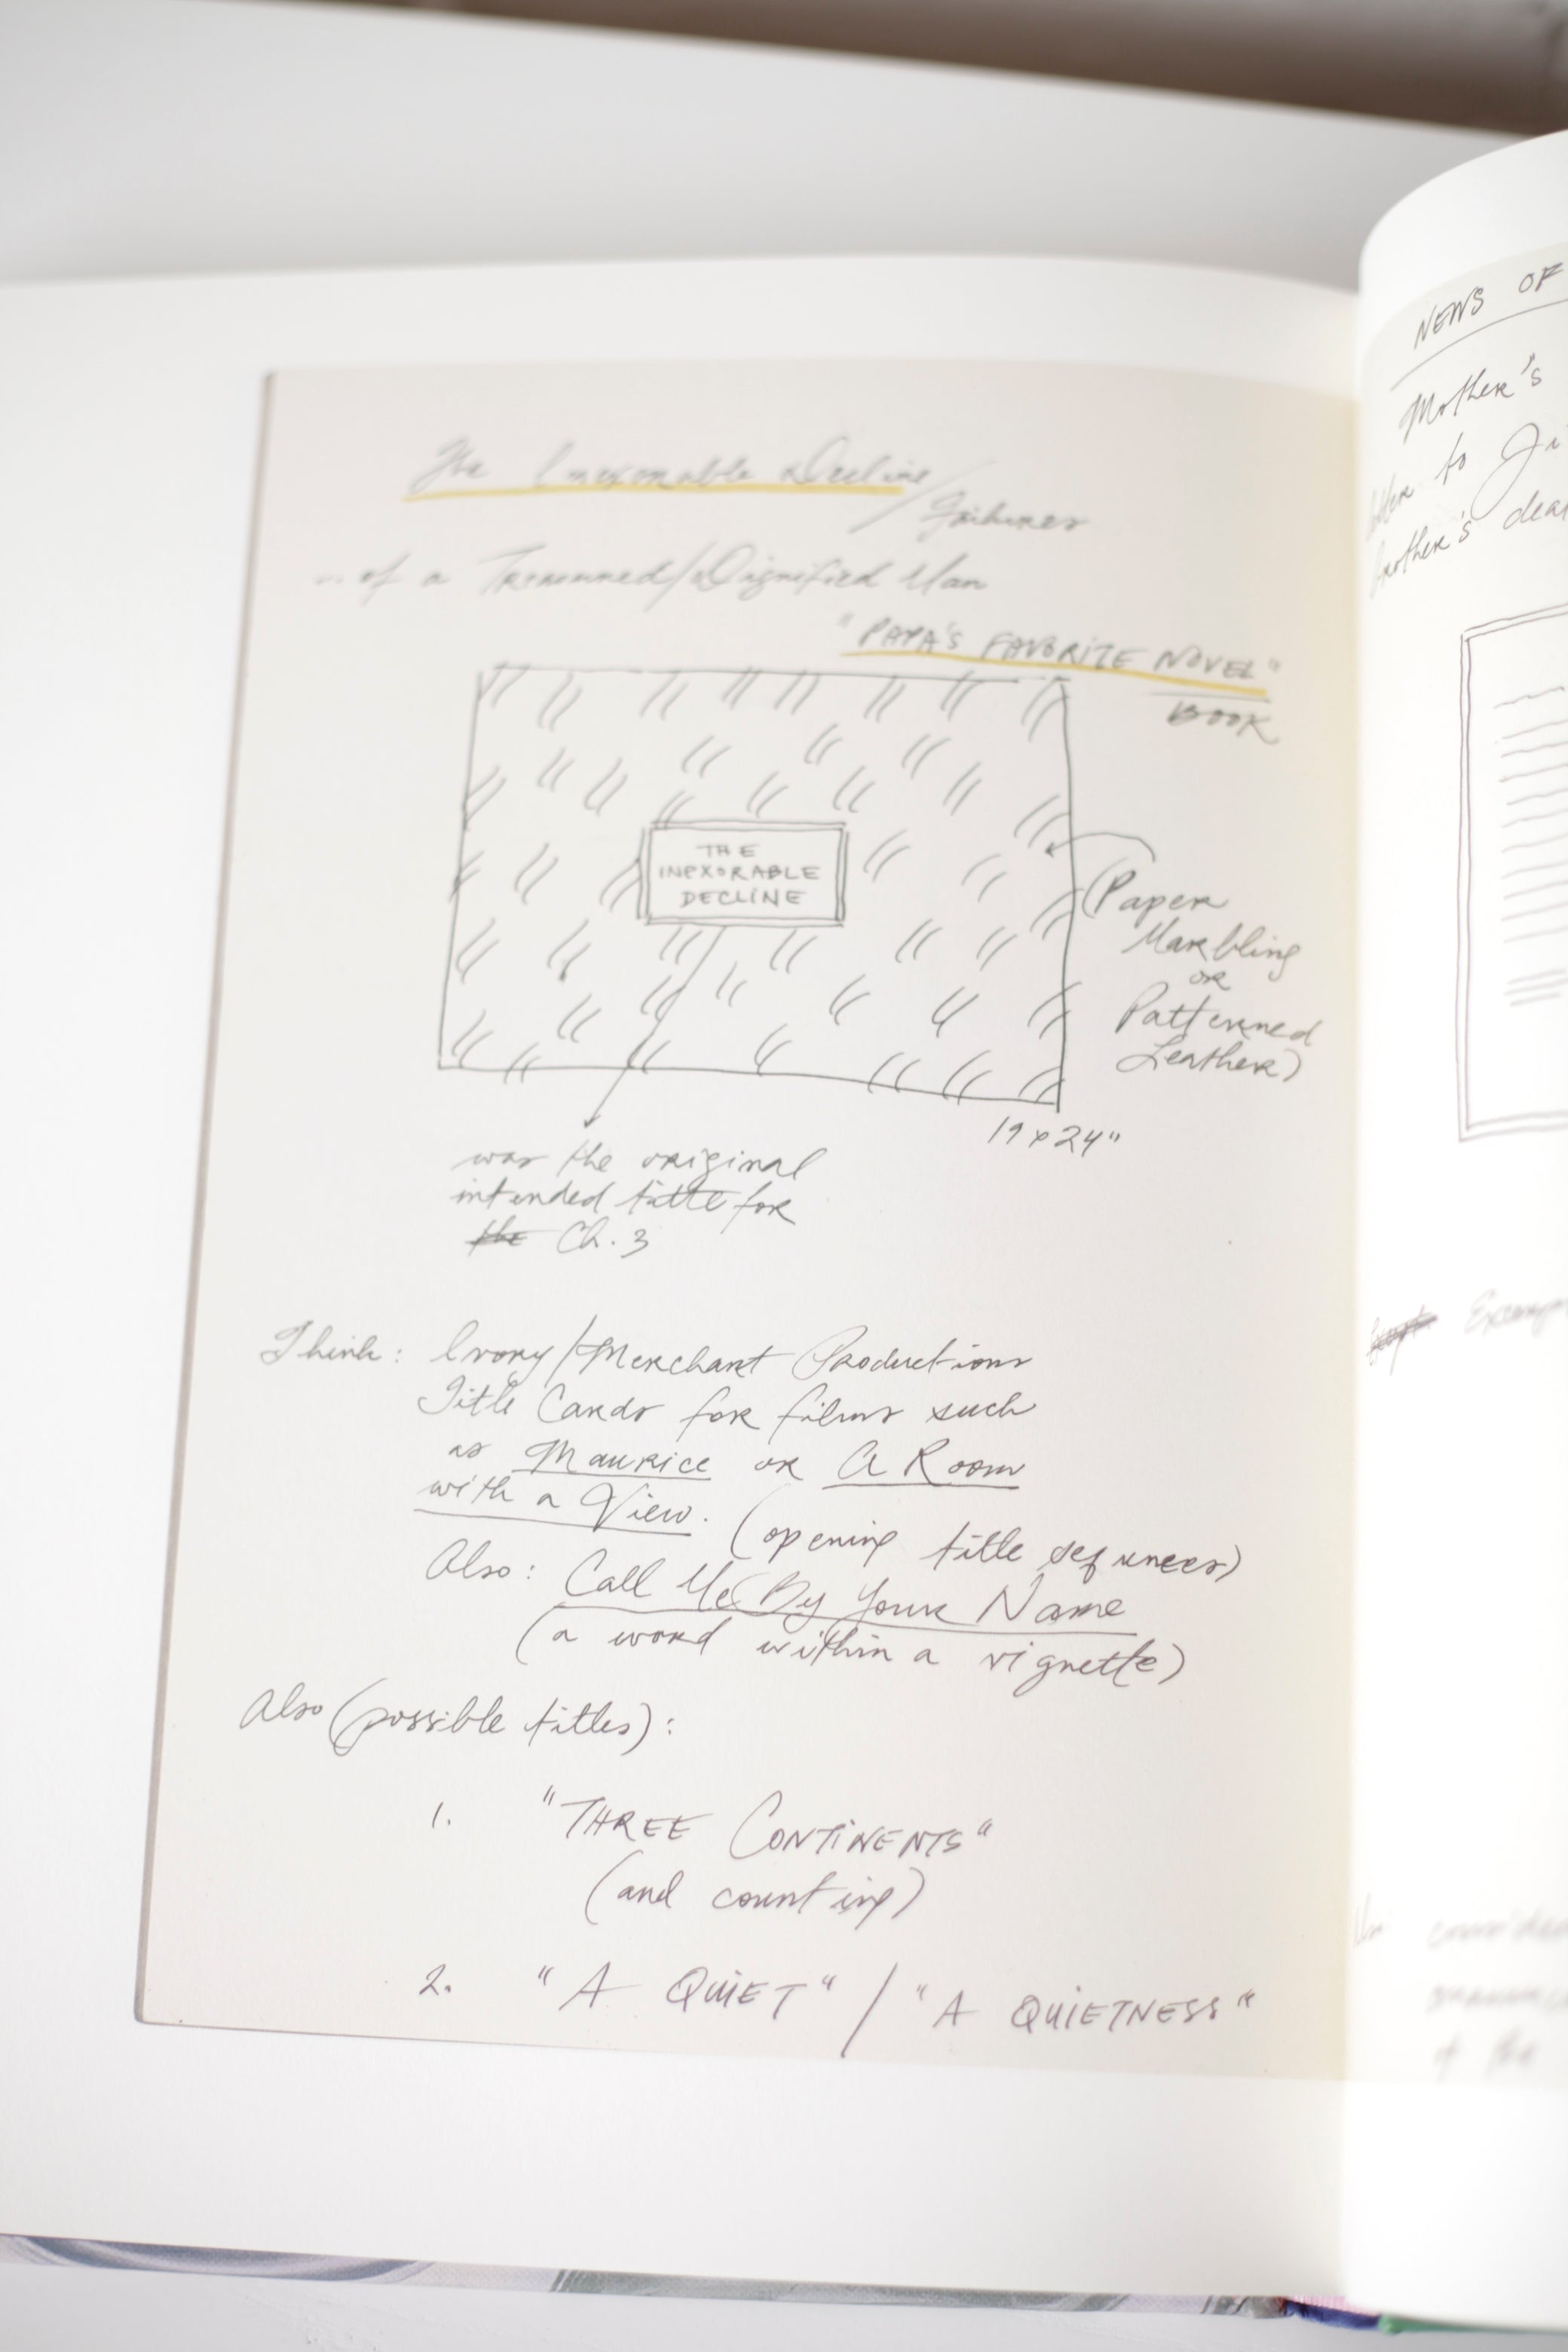 The Inexorable Decline/
Failures
... of a Tenured/Dignified Man
"PAPA'S FAVORITE NOVEL"
BOOK
THE
INEXORABLE
DECLINE
(Paper
Marbling
or
Patterned
Leather)
19 x 24"
was the original
intended title for
the Ch. 3
Think: Ivory/Merchant Productions
Title Cards for films such
as Maurice or A Room
with a View. (opening title sequences)
Also: Call Me By Your Name
(a word within a vignette)
Also (possible titles):
1. "THREE CONTINENTS"
(and counting)
2. "A QUIET" / "A QUIETNESS"
NEWS OF
Mother's
to
Brother's